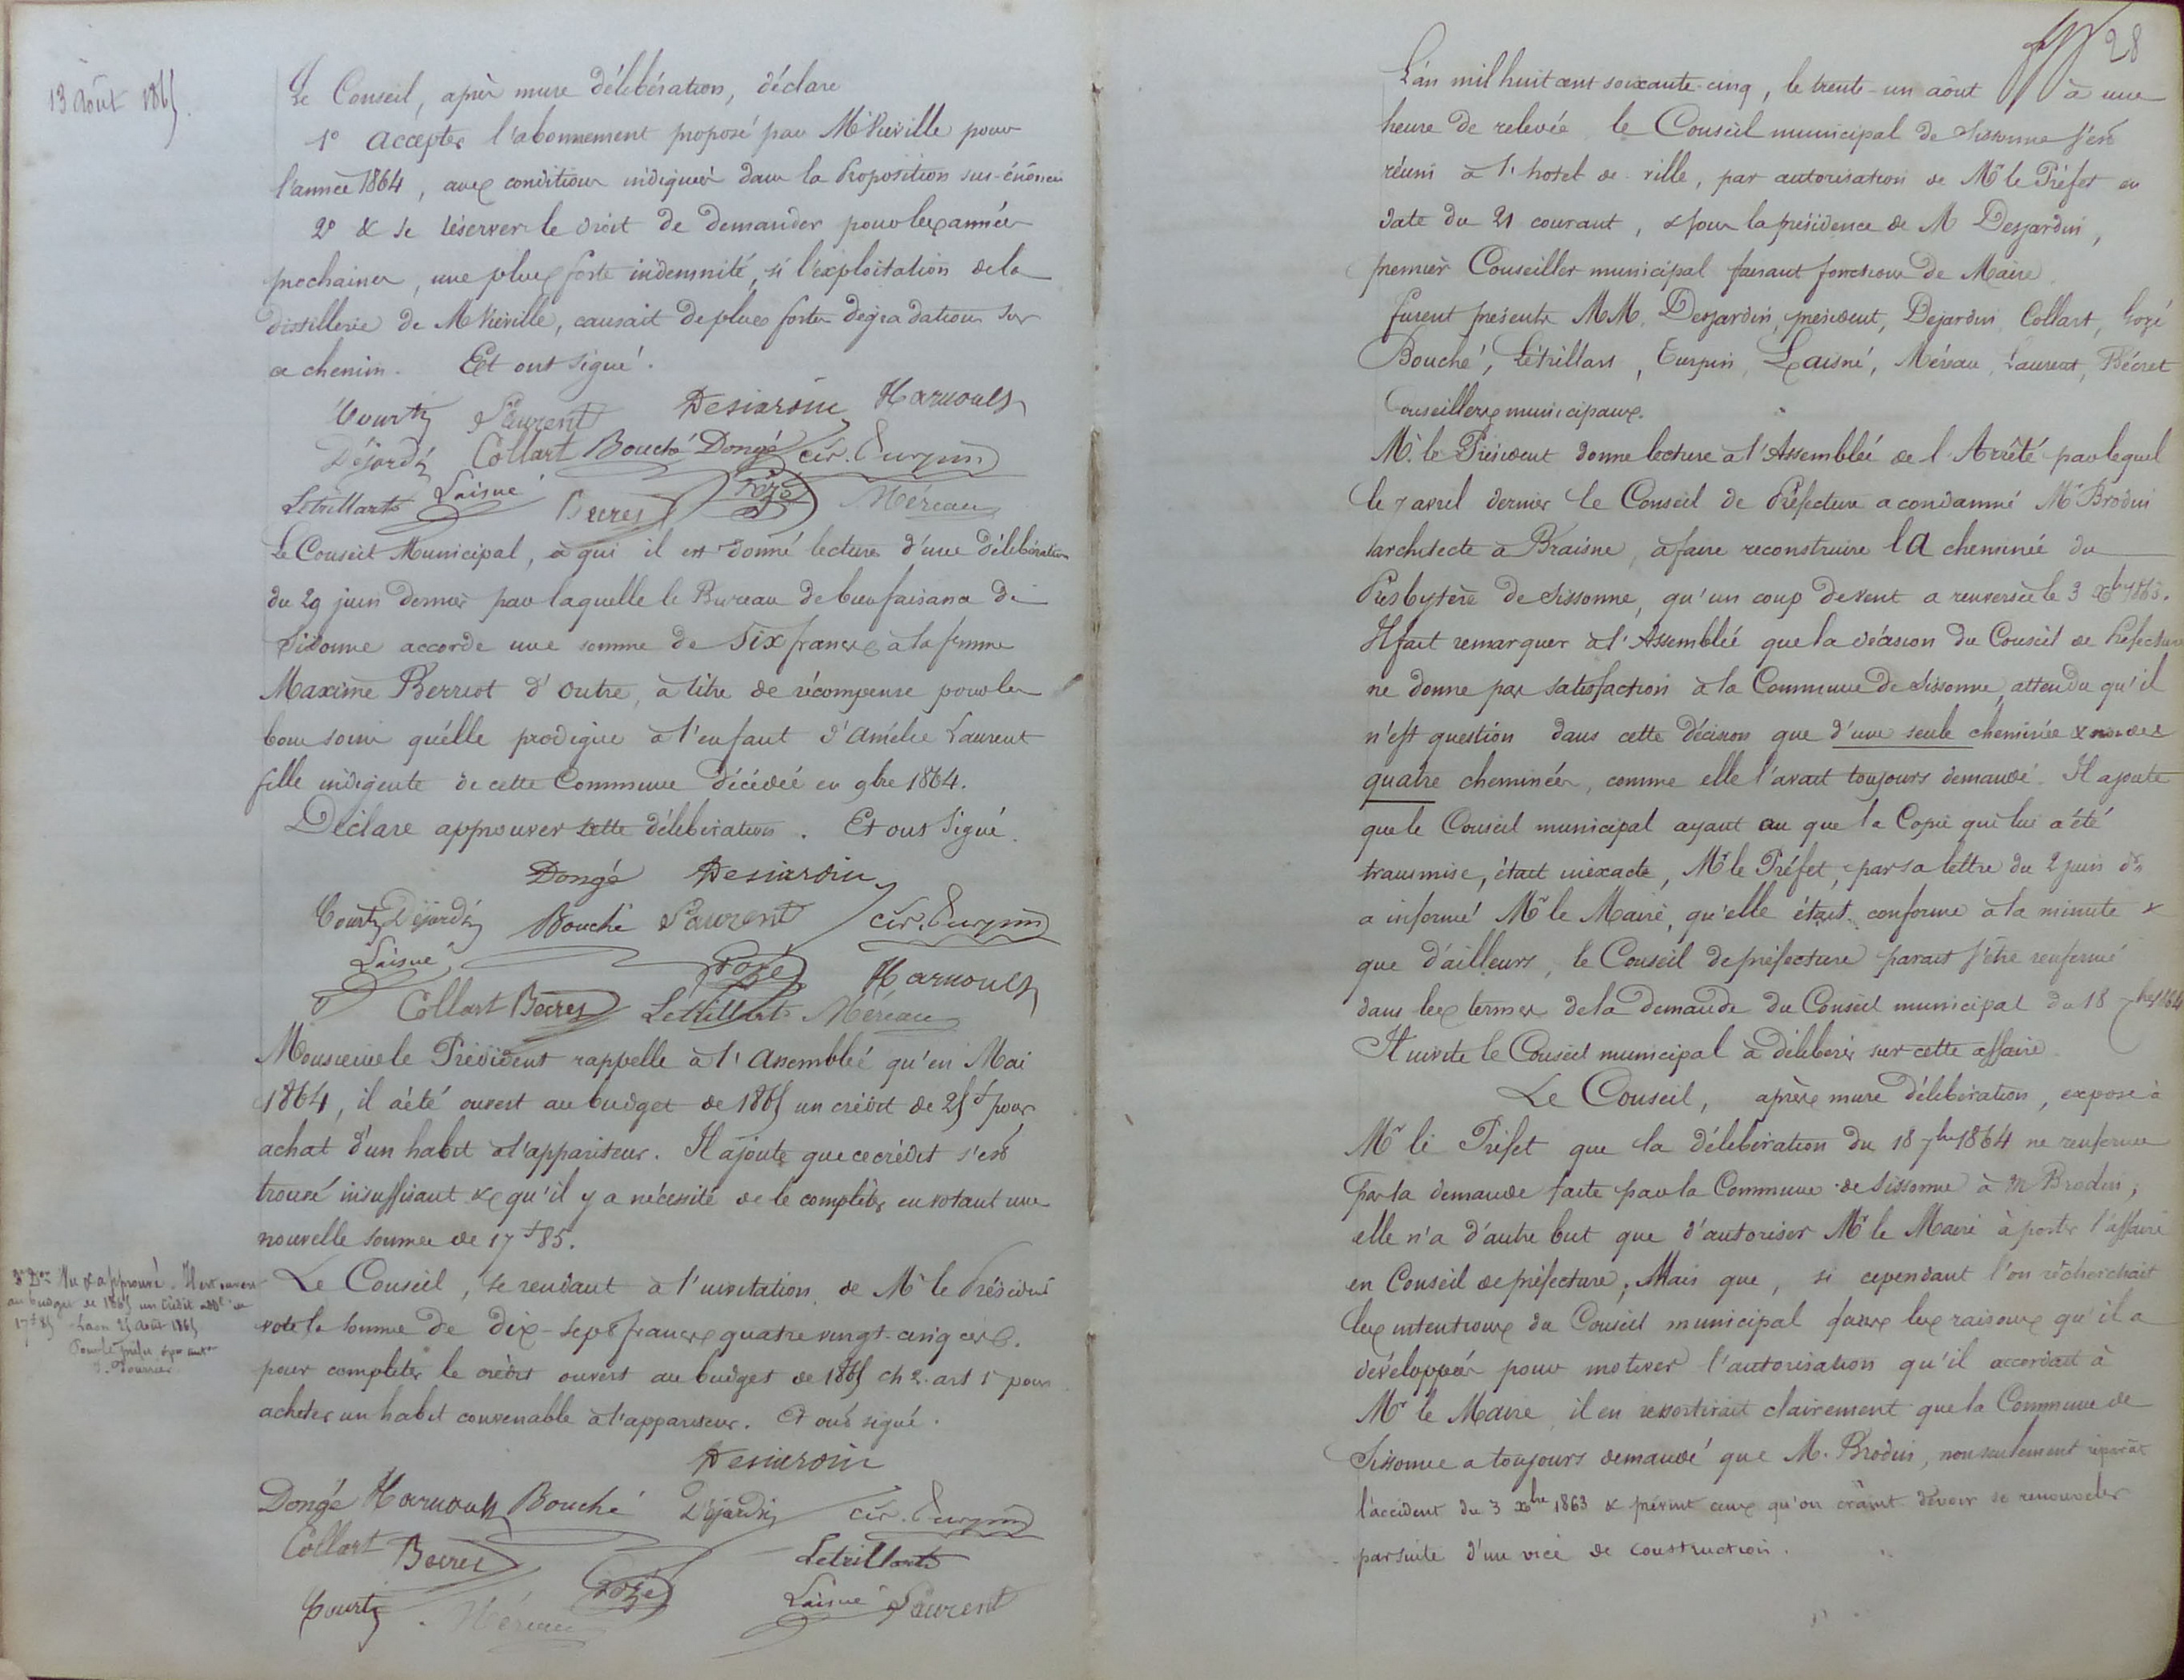 13 août 1865.
Le Conseil, après mure délibération, déclare
1° Accepter l'abonnement proposé par Mr Viéville pour
l'année 1864, aux conditions indiquées dans la Proposition sus-énoncée
2° & se réserver le droit de demander pour les années
prochaines, une plus forte indemnité, si l'exploitation de la
distillerie de M Viéville, causait de plus fortes dégradations sur
ce chemin. Et ont signé.
Courty Laurent Desjardin Harnould
Déjardin Collart Bouché Dongé Cir. Turpin
Letrillart Laisné Becret Rozé Méreau
Le Conseil Municipal, à qui il est donné lecture d'une délibération
du 29 juin dernier par laquelle le Bureau de bienfaisance de
Sissonne accorde une somme de Six francs à la femme
Maxime Berriot d'Outre, à titre de récompense pour les
bons soins qu'elle prodigue à l'enfant d'Amélie Laurent
fille indigente de cette Commune décédée en 9bre 1864.
Déclare approuver cette délibération. Et ont signé.
Dongé Desjardin
Courty Déjardin Bouché Laurent Cir. Turpin
Laisné Rozé Harnould
Collart Becret Letrillart Méreau
Monsieur le Président rappelle à l'Assemblée qu'en Mai
1864, il a été ouvert au budget de 1865 un crédit de 25f pour
achat d'un habit à l'appariteur. Il ajoute que ce crédit s'est
trouvé insuffisant & qu'il y a nécessité de le compléter en votant une
nouvelle somme de 17f85.
Le Conseil, se rendant à l'invitation de Mr le Président
vote la somme de dix-sept francs quatre vingt-cinq ces.
pour completer le crédit ouvert au budget de 1865 ch 2. art 1er pour
acheter un habit convenable à l'appariteur. Et ont signé.
Vu & approuvé. Il est ouvert
au budget de 1865 un Crédit addel de
17f85 Laon 25 Août 1865
Pour le préfet
Desjardin
Dongé Harnould Bouché Déjardin Cir. Turpin
Collart Becret Rozé Letrillart
Courty Méreau Laisné Laurent
28
L'an mil huit cent soixante-cinq, le trente-un août à une
heure de relevée le Conseil municipal de Sissonne s'est
réuni à l'hotel de ville, par autorisation de Mr le Préfet en
date du 21 courant, & sous la présidence de M Desjardin,
premier Conseiller municipal faisant fonctions de Maire.
furent présents MM. Desjardin, président, Dejardin, Collart, Rozé
Bouché, Létrillart, Turpin, Laisné, Méreau, Laurent, Bécret
Conseillers municipaux.
Mr. le Président donne lecture à l'Assemblée de l'Arrêté par lequel
le 7 avril dernier le Conseil de Préfecture a condamné Mr Brodin
architecte à Braisne, à faire reconstruire la cheminée du
Presbytère de Sissonne, qu'un coup de vent a renversée le 3 Xbre 1863.
Il fait remarquer à l'Assemblée que la décision du Conseil de Préfecture
ne donne pas satisfaction à la Commune de Sissonne, attendu qu'il
n'est question dans cette décision que d'une seule cheminée & non des
quatre cheminées, comme elle l'avait toujours demandé. Il ajoute
que le Conseil municipal ayant cru que la Copie qui lui a été
transmise, était inexacte, Mr le Préfet, par sa lettre du 2 juin dr
a informé Mr le Maire, qu'elle était conforme à la minute &
que d'ailleurs, le Conseil de préfecture parait s'être renfermé
dans les termes de la demande du Conseil municipal du 18 7bre 1864
Il invite le Conseil municipal à délibérer sur cette affaire.
Le Conseil, après mure délibération, expose à
Mr le Préfet que la délibération du 18 7bre 1864 ne renferme
pas la demande faite par la Commune de Sissonne à M Brodin;
elle n'a d'autre but que d'autoriser Mr le Maire à porter l'affaire
en Conseil de préfecture; Mais que, si cependant l'on recherchait
les intentions du Conseil municipal dans les raisons qu'il a
développées pour motiver l'autorisation qu'il accordait à
Mr le Maire il en ressortirait clairement que la Commune de
Sissonne a toujours demandé que M. Brodin, non seulement réparât
l'accident du 3 Xbre 1863 & prévint ceux qu'on craint devoir se renouveler
par suite d'un vice de construction.